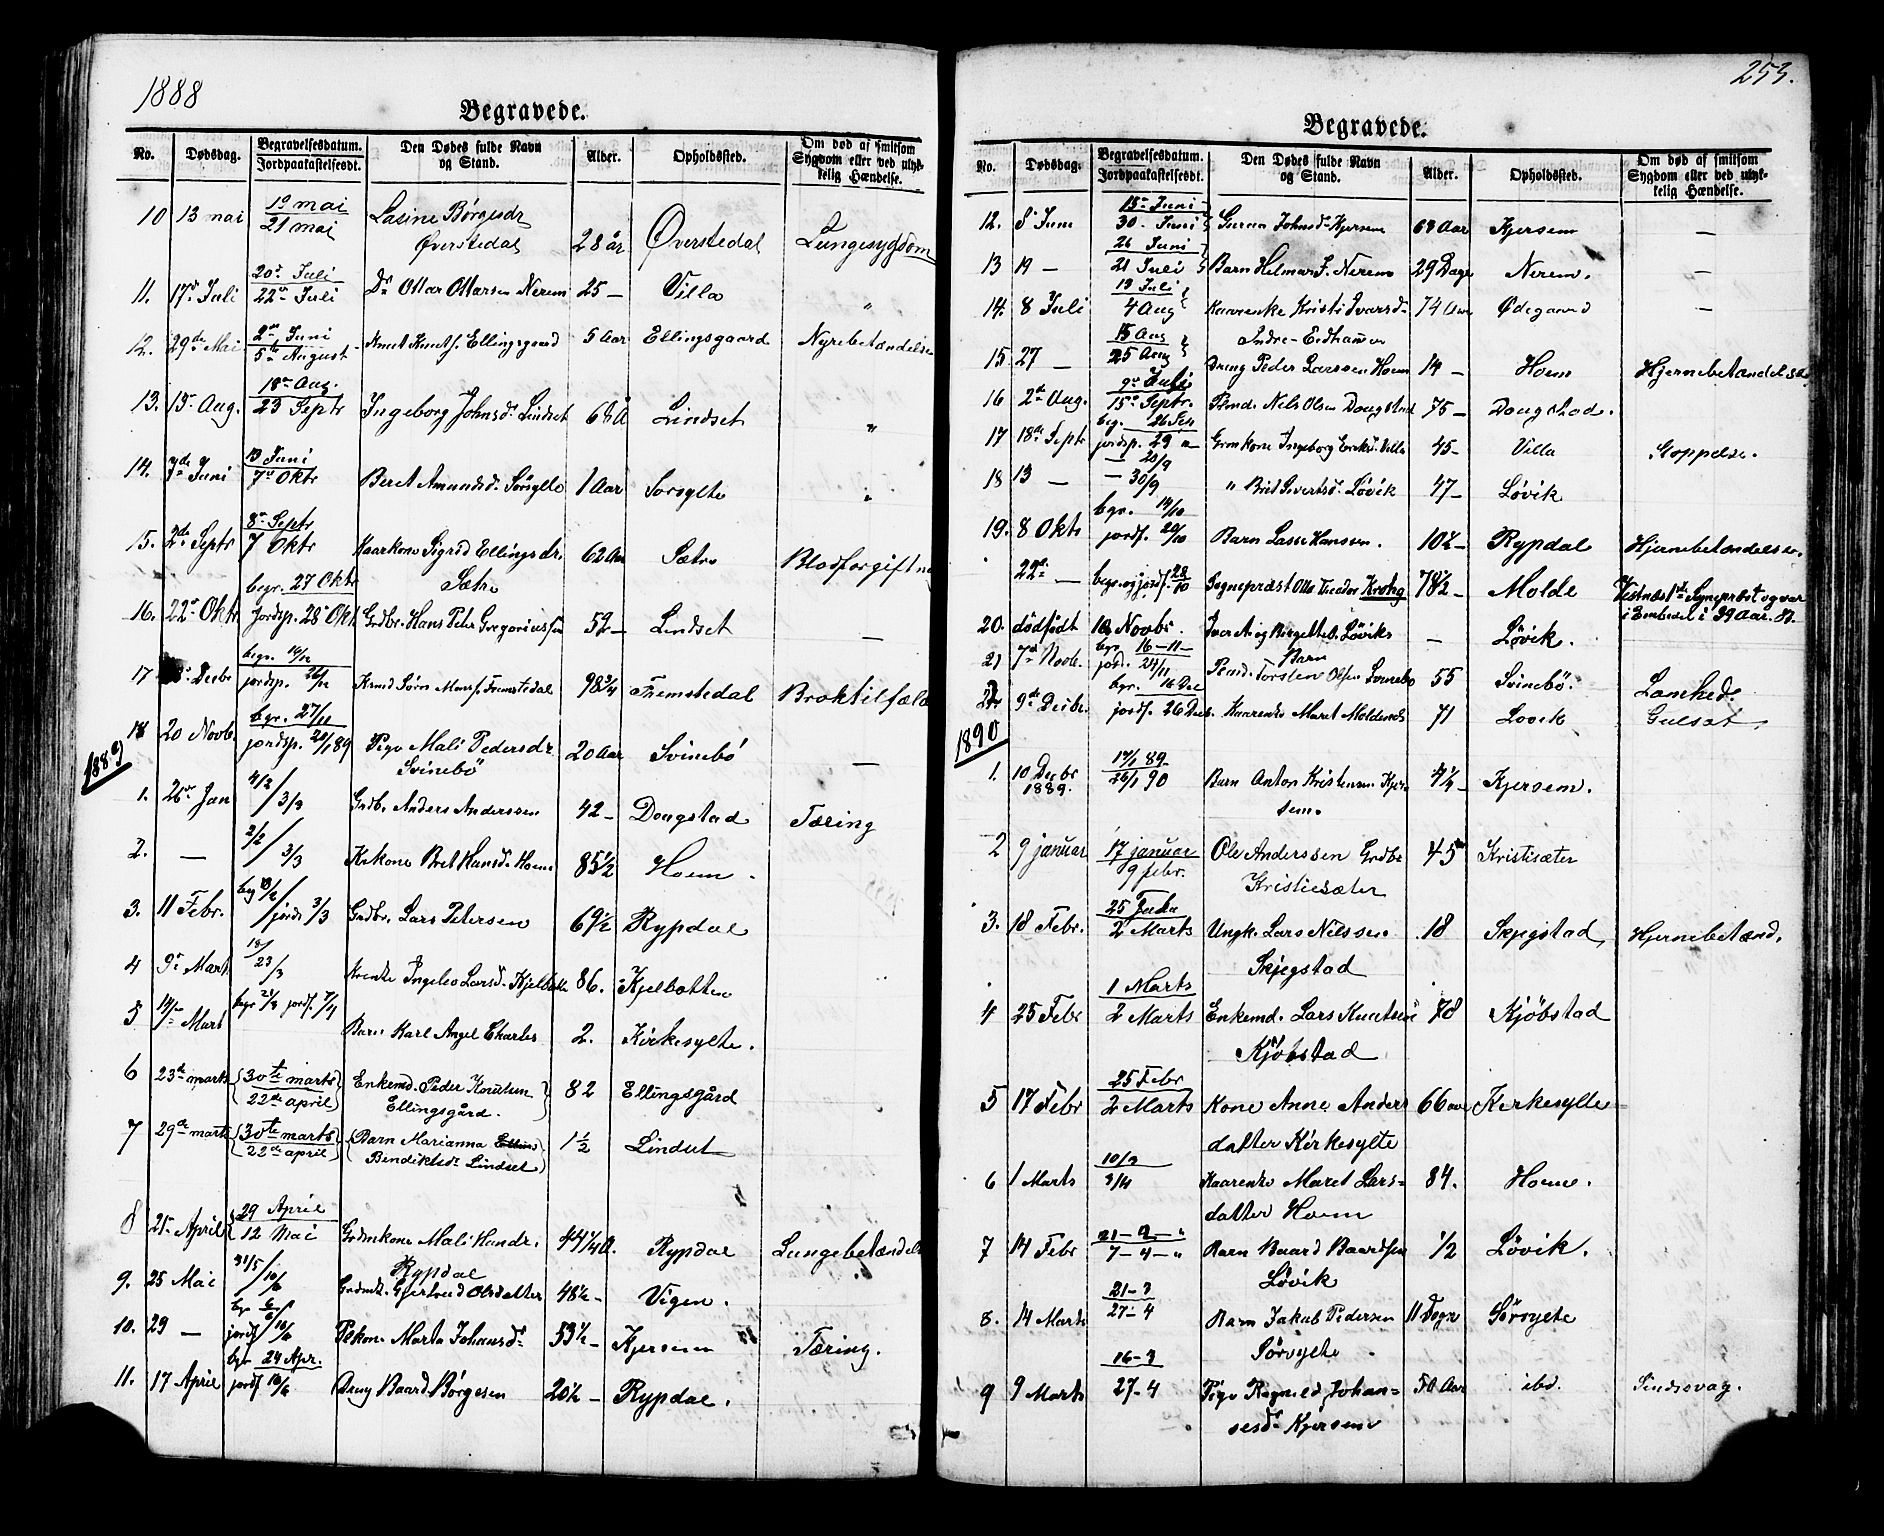 1888
Begravede.
No. Dødsdag. Begravelsesdatum. Jordpaakastelsesdt. Den Dødes fulde Navn og Stand. Alder. Opholdssted. Om død af smitsom Sygdom eller ved ulykkelig Hændelse.
10 13 mai 19 mai
21 mai Lasine Børgesdr
Øverstedal 28 år Øverstedal Lungesygdom
11. 17de Juli 20de Juli
22de Juli Ottar Ottarsen Nerem 25 — Villa "
12. 29de Mai 2den Juni
5te August Knut Knuts. Ellingsgaard 5 Aar Ellingsgaard Nyrebetændelse
13. 15de Aug. 18de Aug.
23 Septr Ingeborg Johnsd. Lindset Lindset "
14. 7de Juni 13 Juni
7de Oktr Beret Amundsd. Sørsylte 1 Aar Sørsylte "
15. 2de Septr 8de Septr
7 Oktr Kaarkone Sigrid Ellingsdr.
Sætre 62 Aar Sætre Blodforgiftn
16. 22de Oktr begr. 27 Oktr
Jordsp. 28 Okt Grdbr. Hans Peter Gregoriussen 52 — Lindset —
17 Decbr begr.
jordsp. Fremstedal 98 3/4 Fremstedal Broktilfælde
18 20 Novb. begr. 27/11
jordsp. 20/1 89 Pige Mali Pedersdr.
Svinebö 20 Aar Svinebö —
1889
1. 26de Jan 4/2 / 3/3 Grdbr. Anders Anderssen 42 — Dougstad Tæring
2. — 2/2 / 3/3 Krkone Bret Hansd. Hoem 85½ Hoem.
3. 11 Febr. beg 18/2 / jords 3/3 Grdbr. Lars Petersen 69½ Rypdal
4 9de Mart 18/ 23/3 Krenke Ingeleo Larsd. Kjelbotten 86. Kjelbotten
5 14de Mart begr 21/3 jordf. 7/4
Barn Karl Angel Charles 2. Kirkesylte.
6 23de marts 30te marts
22de april Enkemd. Peder Knutsen
Ellingsgård. 82 Ellingsgård
7 29de marts 30te marts
22de april Barn Marianna
Bendiktsdr Lindset 1½ Lindset
8 21de April 29 April
12 Mai Grdmkone Mali Hansdr.
Rypdal 44 1/4 A. Rypdal Lungebetændel
9. 25 Mai 31/5 / 10/6 Grdmk. Gjertrud Olsdatter 48½ — Vigen.
10. 29 — bgr
jordf 10/6 Pekone Marta Johansdr 53½ — Kjersem Tæring.
11. 17 April bgr 24 Apr.
jordf 10/6 Dreng Baard Børgesen 20½ — Rypdal.
253.
Begravede.
No. Dødsdag. Begravelsesdatum. Jordpaakastelsesdt. Den Dødes fulde Navn og Stand. Alder. Opholdssted. Om død af smitsom Sygdom eller ved ulykkelig Hændelse.
12. 8de Juni 15de Juni
30. Juni Guren Johnsdr Kjersem 68 Aar Kjersem —
13 19 — 26 Juni
21 Juli Barn Helmar J. Nerem 29 Dage Nerem. —
14. 8 Juli 13 Juli
4 Aug Kaarenke Kristi Ivarsd. 74 Aar Ødegaard —
Indre-Eidhamm
15 27 — 15 Aug
25 Aug Dreng Peder Larssen Hoem 14 — Hoem Hjernebetændelse
16 2de Aug. 9de
15de Septr. Nils Olsen Dougstad 75 — Dougstad.
17 18de Septr beg. 26 Sep
jordsp. 29 Grmkone Ingeborg Eriksd. Villa 45 — Villa
18 13 — — 20/9
— 30/9 " Brit Sivertsd. Løvik 47 — Løvik
19. 8 Oktr bgr. 14/10
jordf. 20/10 Barn Lasse Hanssen. 10½ — Rypdal Hjernebetændelse.
22de — begr. og jordf. 28/10 Sogneprest Otto Theodor Krohg 78½ — Molde Vestnæs 1ste Sogneprest og var
i Embedet i 39 Aar.
20. dödfödt 10 Novbr. Iver A. og Birgettes Løviks
Barn — Løvik.
21 7de Novb. bgr 16-11-
jord. 24/11 Torsten Olsen Svinebø 55 Svinebø.
22 9de Decbr. bgr. 16 Dec
jordf. 26 Decb. Kaarenke Maret Moldenes 71 Løvik Gulsot
1890
1. 10 Decbr
1889. 17/1 89
26/1 90 Barn Anton Kristensen Kjer
sem. Kjersem.
2 9 januar 17 januar
9 febr. Ole Anderssen Grdbr
Kristiesæter 45 Kristisæter
3. 18 Febr. 25
2 Marts Ungk. Lars Nilssen
Skjegstad 18 Skjegstad Hjernebetænd.
4 25 Febr 1 Marts
2 Marts Enkemd. Lars Knutsen
Kjöbstad 78 Kjöbstad
5 17 Febr 25 Febr
2 Marts Kone Anne Anders
datter Kirkesylte 66 aar Kirkesylte
6 1 Marts 10/3
7/4 Kaarenke Maret Lars-
datter Hoem 84. Hoem.
7 14 Febr 21-2-"
7-4-" Barn Baard Baardsen
Løvik ½ Løvik.
8. 14 Marts 21-3
27-4 Barn Jakob Pedersen
Sörsylte 11 Dage Sörsylte
9 9 Marts 16-3
27-4 Pige Ragnild Johan-
sesdr Kjersem 50 Aar ibd. Sindssvag.